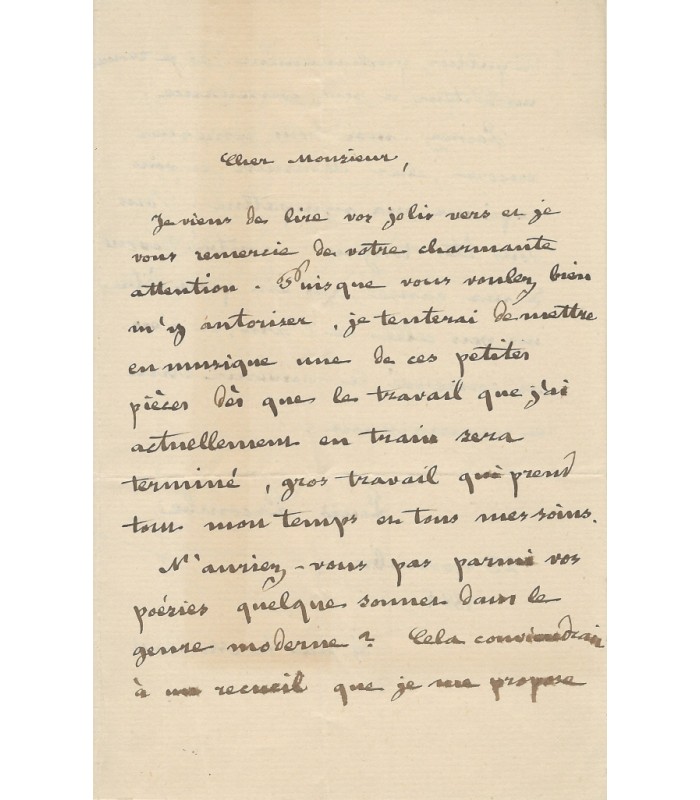 Cher Monsieur,
Je viens de lire vos jolis vers et je
vous remercie de votre charmante
attention. Puisque vous voulez bien
m'y autoriser, je tenterai de mettre
en musique une de ces petites
pièces dès que le travail que j'ai
actuellement en train sera
terminé, gros travail qui prend
tout mon temps et tous mes soins.
N'auriez-vous pas parmi vos
poésies quelque sonnet dans le
genre moderne? Cela conviendrait
à un recueil que je me propose